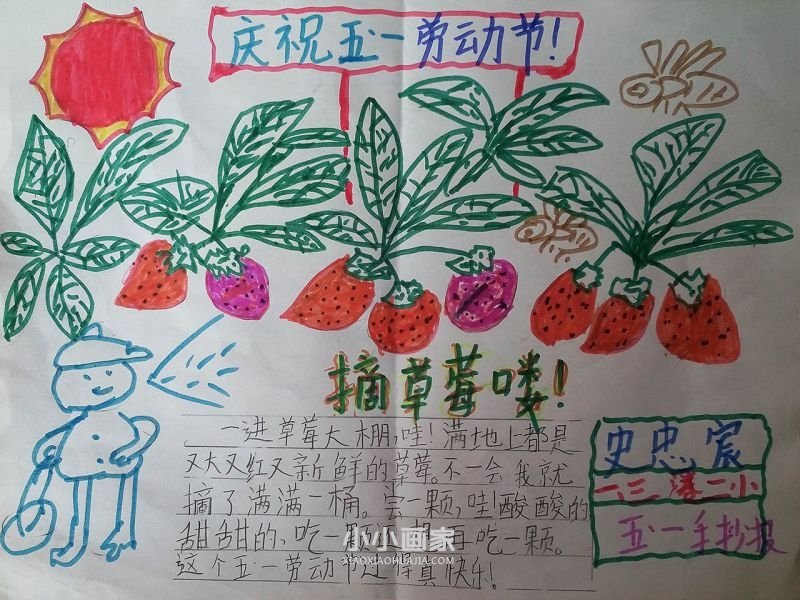 庆祝五一劳动节!
摘草莓喽!
一进草莓大棚,哇!满地上都是
又大又红又新鲜的草莓。不一会我就
摘了满满一桶。尝一颗,哇!酸酸的
甜甜的,吃一颗 再吃一颗。
这个五一劳动节过得真快乐!
史忠宸
一、三 二小
五一手抄报
小小画家
XIAOXIAOHUAJIA.COM